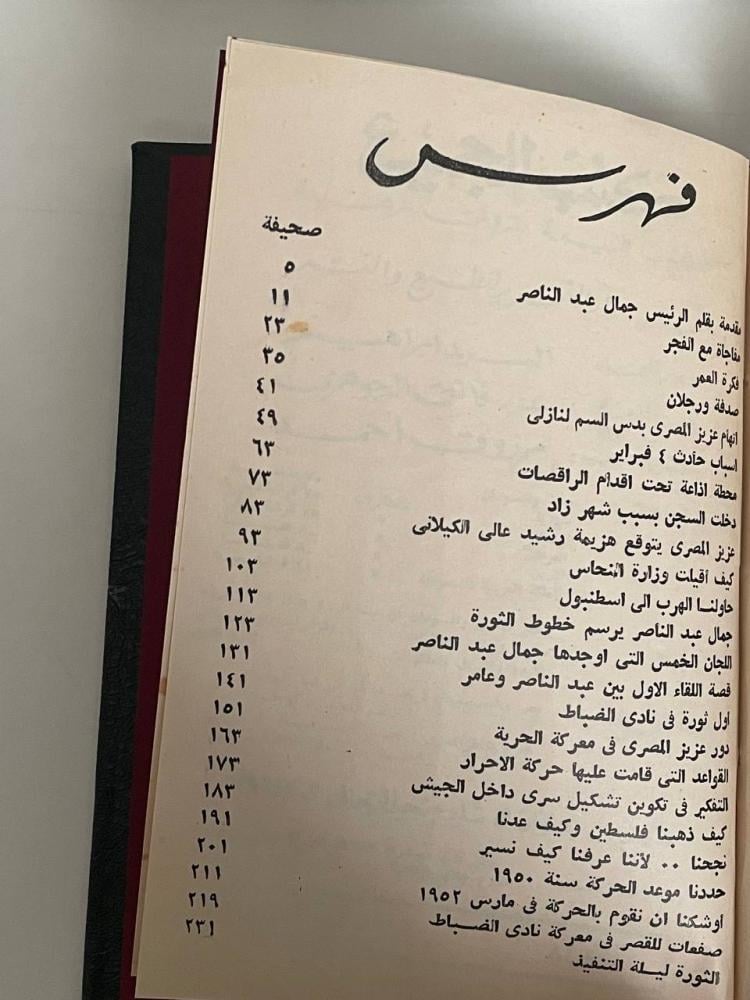 فهرس
صحيفة
مقدمة بقلم الرئيس جمال عبد الناصر ٥
مفاجاة مع الفجر ١١
فكرة العمر ٢٣
صدفة ورجلان ٣٥
اتهام عزيز المصرى بدس السم لنازلى ٤١
اسباب حادث ٤ فبراير ٤٩
محطة اذاعة تحت اقدام الراقصات ٦٣
دخلت السجن بسبب شهر زاد ٧٣
عزيز المصرى يتوقع هزيمة رشيد عالى الكيلانى ٨٣
كيف أقيلت وزارة النحاس ٩٣
حاولنا الهرب الى اسطنبول ١٠٣
جمال عبد الناصر يرسم خطوط الثورة ١١٣
اللجان الخمس التى اوجدها جمال عبد الناصر ١٢٣
قصة اللقاء الاول بين عبد الناصر وعامر ١٣١
اول ثورة فى نادى الضباط ١٤١
دور عزيز المصرى فى معركة الحرية ١٥١
القواعد التى قامت عليها حركة الاحرار ١٦٣
التفكير فى تكوين تشكيل سرى داخل الجيش ١٧٣
كيف ذهبنا فلسطين وكيف عدنا ١٨٣
نجحنا .. لأننا عرفنا كيف نسير ١٩١
حددنا موعد الحركة سنة ١٩٥٠ ٢٠١
أوشكنا ان نقوم بالحركة فى مارس ١٩٥٢ ٢١١
صفعات للقصر فى معركة نادى الضباط ٢١٩
الثورة ليلة التنفيذ ٢٣١